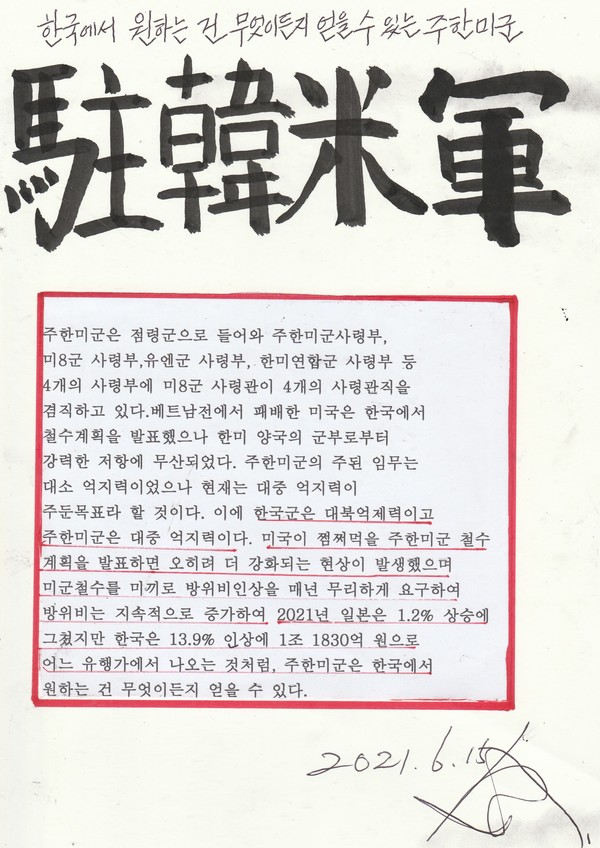 한국에서 원하는 건 무엇이든지 얻을 수 있는 주한미군
駐韓米軍
주한미군은 점령군으로 들어와 주한미군사령부,
미8군 사령부,유엔군 사령부, 한미연합군 사령부 등
4개의 사령부에 미8군 사령관이 4개의 사령관직을
겸직하고 있다.베트남전에서 패배한 미국은 한국에서
철수계획을 발표했으나 한미 양국의 군부로부터
강력한 저항에 무산되었다. 주한미군의 주된 임무는
대소 억지력이었으나 현재는 대중 억지력이
주둔목표라 할 것이다. 이에 한국군은 대북억제력이고
주한미군은 대중 억지력이다. 미국이 쩜쩌먹을 주한미군 철수
계획을 발표하면 오히려 더 강화되는 현상이 발생했으며
미군철수를 미끼로 방위비인상을 매년 무리하게 요구하여
방위비는 지속적으로 증가하여 2021년 일본은 1.2% 상승에
그쳤지만 한국은 13.9% 인상에 1조 1830억 원으로
어느 유행가에서 나오는 것처럼, 주한미군은 한국에서
원하는 건 무엇이든지 얻을 수 있다.
2021.6.15